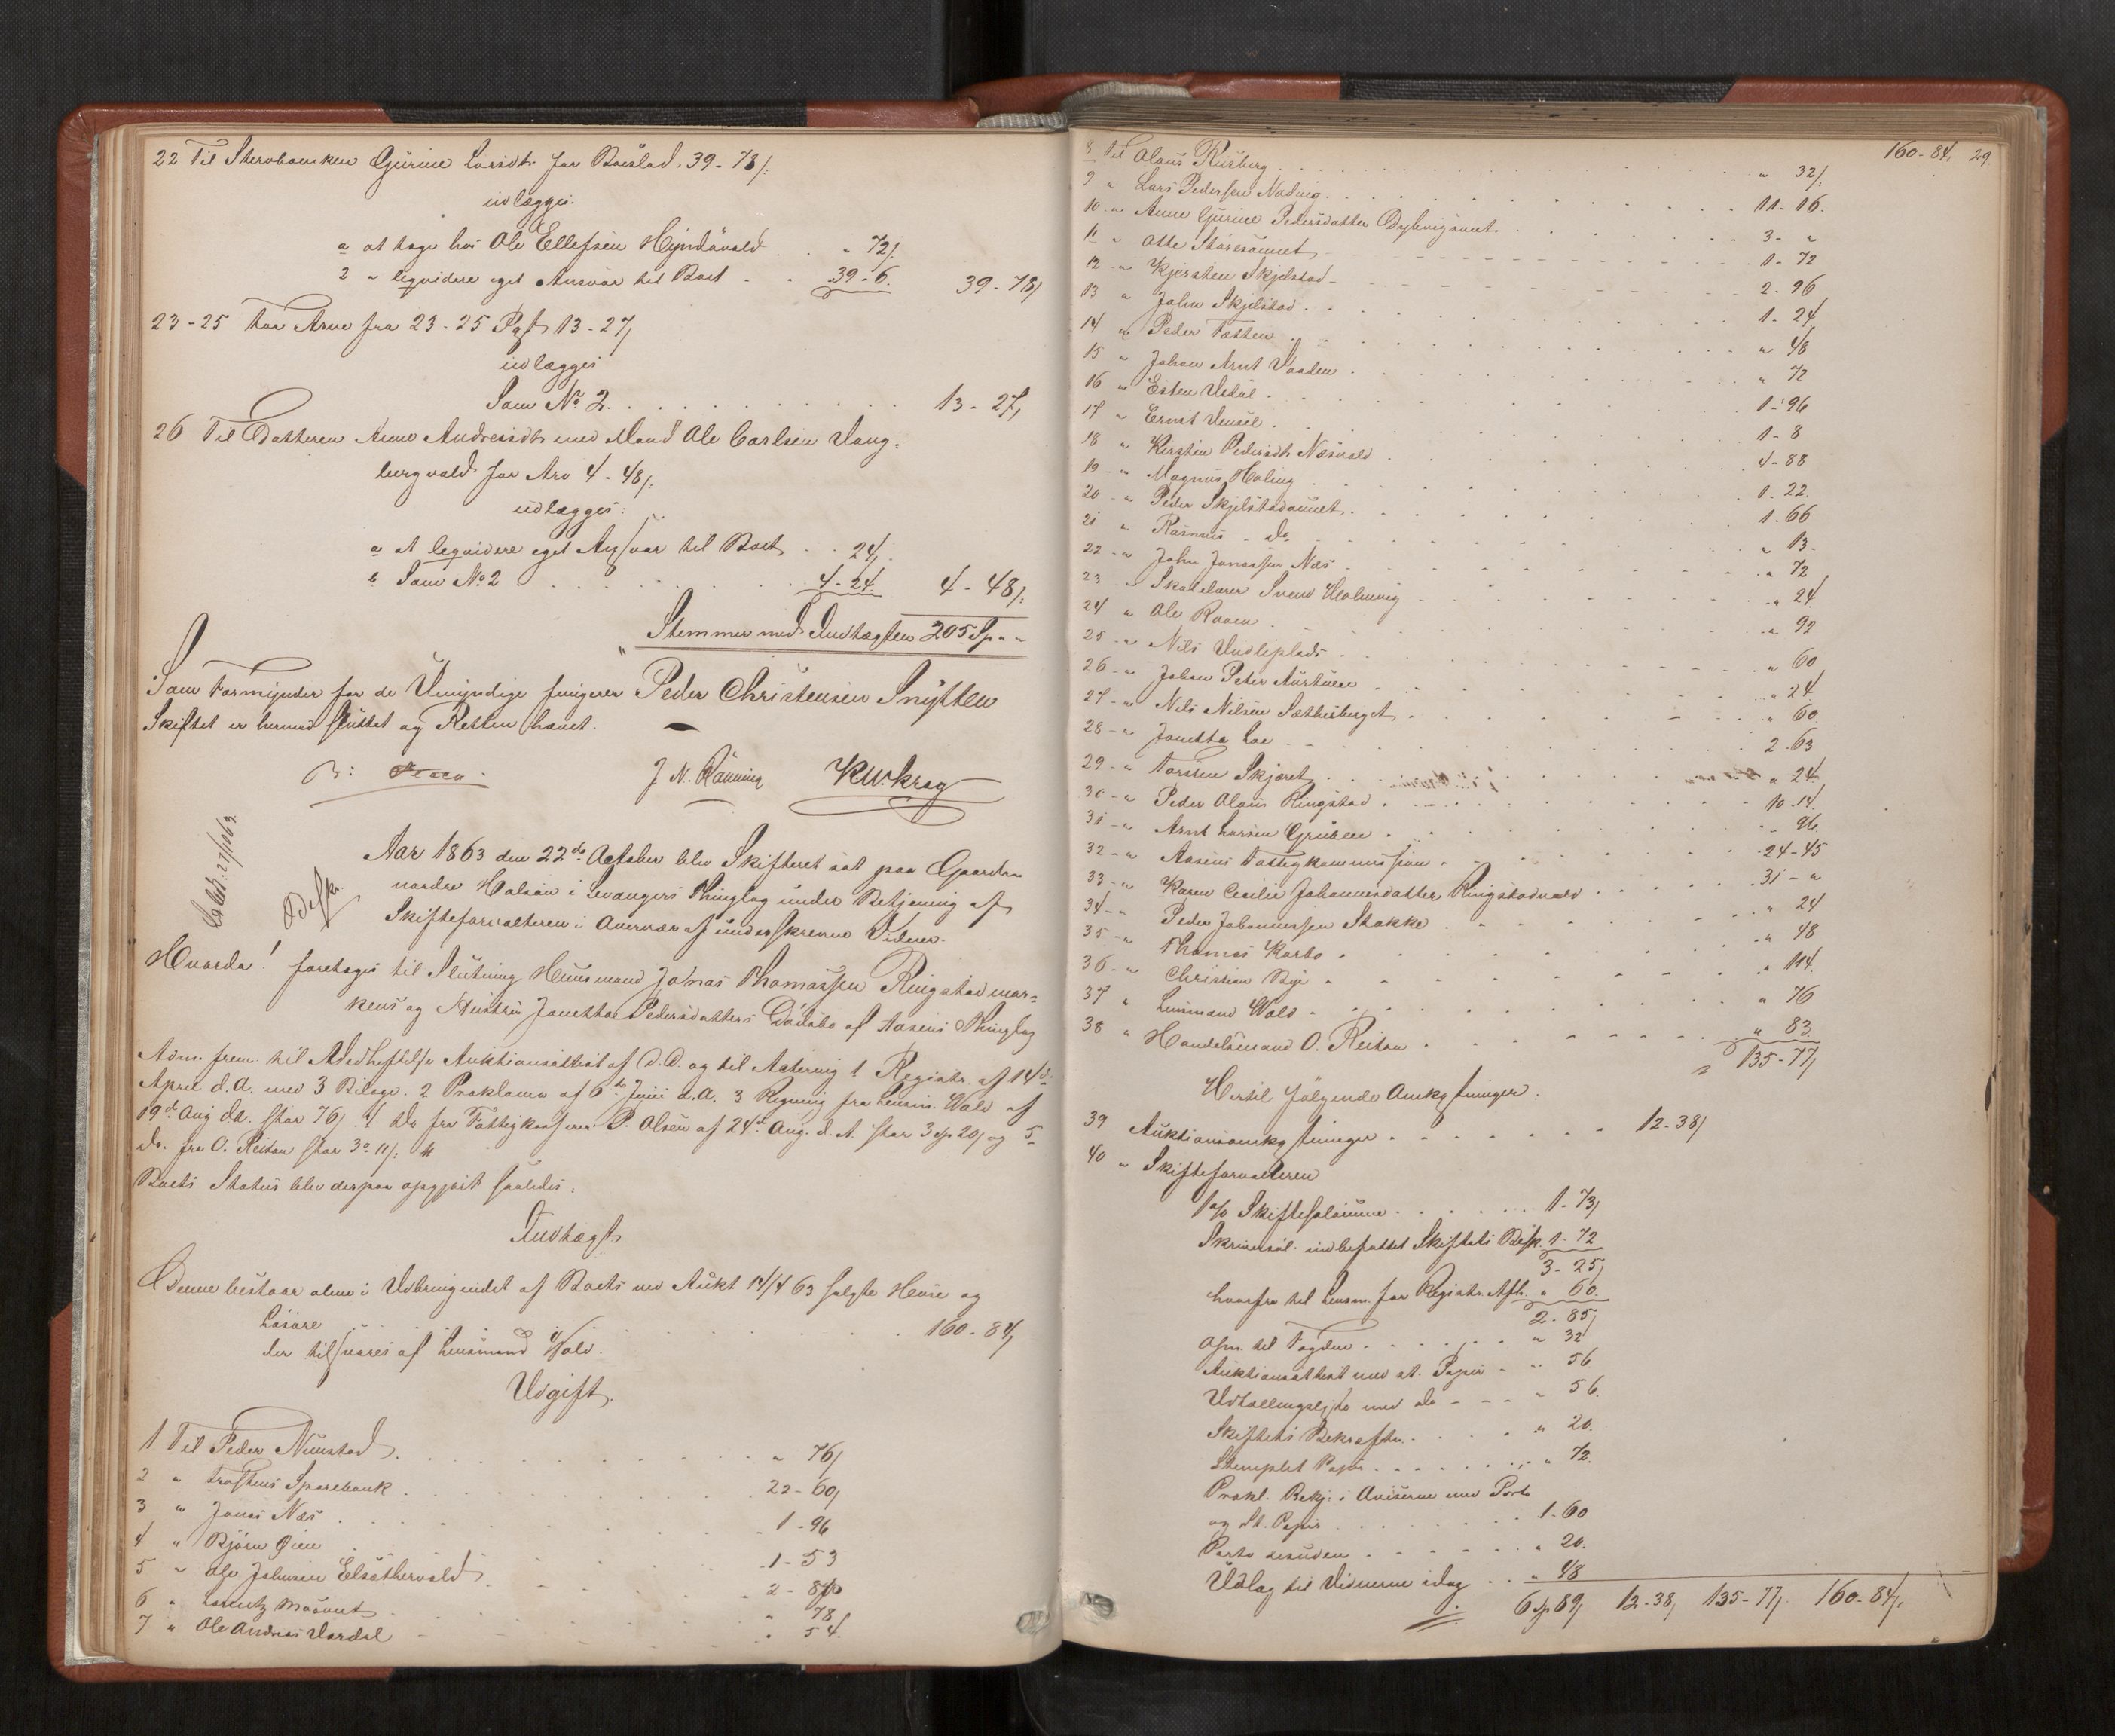 22 Til Stervboenken Gurine Larsdtr for Boeslod. 39-78/:
udlægges:
a at tage hos Ole Ellefsen Hejndövald . . " 72/.
2 " leqvidere eget Ansvar til Boet - . 39-6. 39-78/
23-25 haa Arne fra 23-25 13-27/
udlægges
Som No 2. . . . . . . . . . . 13-27/
26 Til Datteren Anne Andreasdtr med Mand Ole Carlsen Vang-
bergvald for Arv 4-48/:
udlægges:
a at leqvidere eget Ansvar til Boet . . 24/.
b Som No 2 . . . . . . . . 4-24. 4-48/:
Stemmer med Indtægten 205 Sp " "
Som Formynder for de Umyndige fungerer Peder Christensen Snÿtten
Skiftet er hermed sluttet og Retten hævet.
J N. Rönning KW. Krag
Aar 1863 den 22de October blev Skifteret sat paa Gaarden
nordre Halsan i Levangers Thinglag under Betjening af
Skifteforvalteren i Overvær af underskrevne Vidner.
Hvorda! foretoges til Slutning Huusmand Jonas Thomassen Ringstadmar-
kens og Hustru Jonetta Pedersdatters Dödsbo af Aasens Thinglag
Adm. frem. til Vedheftelse Auktionsattest af D.D. og til Actering 1 Registr. af 14de
April d.A. med 3 Bilage. 2 Proklama af 6te Juni d.A. 3 Regning fra Lensm. Wold af
19de Aug d.A. stor 76/ 4 Do fra Fattigkasserer P. Olsen af 24de Aug. d.A. stor 3 Sp 20/ og 5
do. fra O. Reitan stor 3 " 11/:
Boets Status blev derpaa opgjort saaledes:
Indtægt
Denne bestaar alene i Udbringendet af Boets ved Aukt 14/4 63 solgte Heure og
Lösöre . . . . . . . . . . . . 160-84/
der tilsvares af Lensmand Wold.
Udgift.
1 Til Peder Nunstad . . . . . . . . . " 76/
2 " Frostens Sparebank . . . . . . . . 22-60/
3 " Jonas Næs . . . . . . . . . . 1-96
4 " Bjørn Øien . . . . . . . . . . 1-53
5 " Ole Johnsen Elsöthervald . . . . . 2-84
6 " Lorentz Moövnet . . . . . . . . " 78
7 " Ole Andreas Vordal . . . . . . . " 54.
160-84, 29.
8 Til Olaus Riisberg . . . . . . . . . . " 32/.
9 " Lars Pedersen Nodvig . . . . . . . . . 11-16.
10 " Anne Gurine Pedersdatter Dybvigaunet . . . . . 3- "
11 " Otte Störesaunet . . . . . . . . . 1-72
12 " Kjersten Skjelstad . . . . . . . . . 2-96
13 " John Skjelstad . . . . . . . . . 1-24
14 " Peder Fætten . . . . . . . . . " 48
15 " Johan Arnt Vaaden . . . . . . . . " 72
16 " Esten Vedul . . . . . . . . . . 1-96
17 " Ernst Vensel . . . . . . . . . 1-8
18 " Kersten Pedersdtr Næsvald . . . . . . . 4-88
19 " Magnus Holing . . . . . . . . . 1.22.
20 " Peder Skjelstadaunet . . . . . . . . 1.66
21 " Rasmus - do . . . . . . . . . " 13.
22 " John Jonassen Næs . . . . . . . . " 72
23 " Skolelærer Svend Holmvig . . . . . . . " 24
24 " Ole Raaen . . . . . . . . . . " 92
25 " Nils Vudleplads . . . . . . . . . " 60
26 " Johan Peter Aurtuen . . . . . . . . " 24
27 " Nils Nilsen Sæthersberget . . . . . . . " 60
28 " Jonetta Loe . . . . . . . . . . 2-63
29 " Torsten Skjæret . . . . . . . . . " 24
30 " Peder Olaus Ringstad . . . . . . . . 10-14.
31 " Arnt Larsen Gruben . . . . . . . . " 96
32 " Aasens Fattigkommission . . . . . . . 24-45
33 " Karen Cecilie Johannesdatter Ringstadvald . . . . 31- "
34 " Peder Johannessen Stokke . . . . . . . " 24
35 " Thomas Korbo . . . . . . . . . " 48
36 " Christian Bye . . . . . . . . . " 114.
37 " Lensmand Wold . . . . . . . . . " 76
38 " Handelsmand O. Reitan . . . . . . . . " 83
135-77/
Hertil følgende Omkostninger:
39 Auktionsomkostninger . . . . . . . 12-38/
40 " Skifteforvalteren
1 o/o Skiftesalærium . . . . . . 1-73/
Skriversal. indbefattet Skiftets Besk. 1-72
3-25/
hvorfra til Lensm. for Registr. Afh. " 60.
2-85/
Osm. til Fogden . . . . . " 32
Auktionsattest med st. Papir - " 56
Udtællingsljst med do - - - " 56.
Skiftets Bekræftn. . . . . " 20.
Stemplet Papir . . . . . . . " 72.
Prokl. Bekj. i Aviserne med Porto
og St. Papir . . . . . . . . 1-60
Porto desuden . . . . . . . " 20.
Udlag til Vidnerne idag . . " 48
6 Sp 89/ 12-38/ 135-77/ 160-84/.